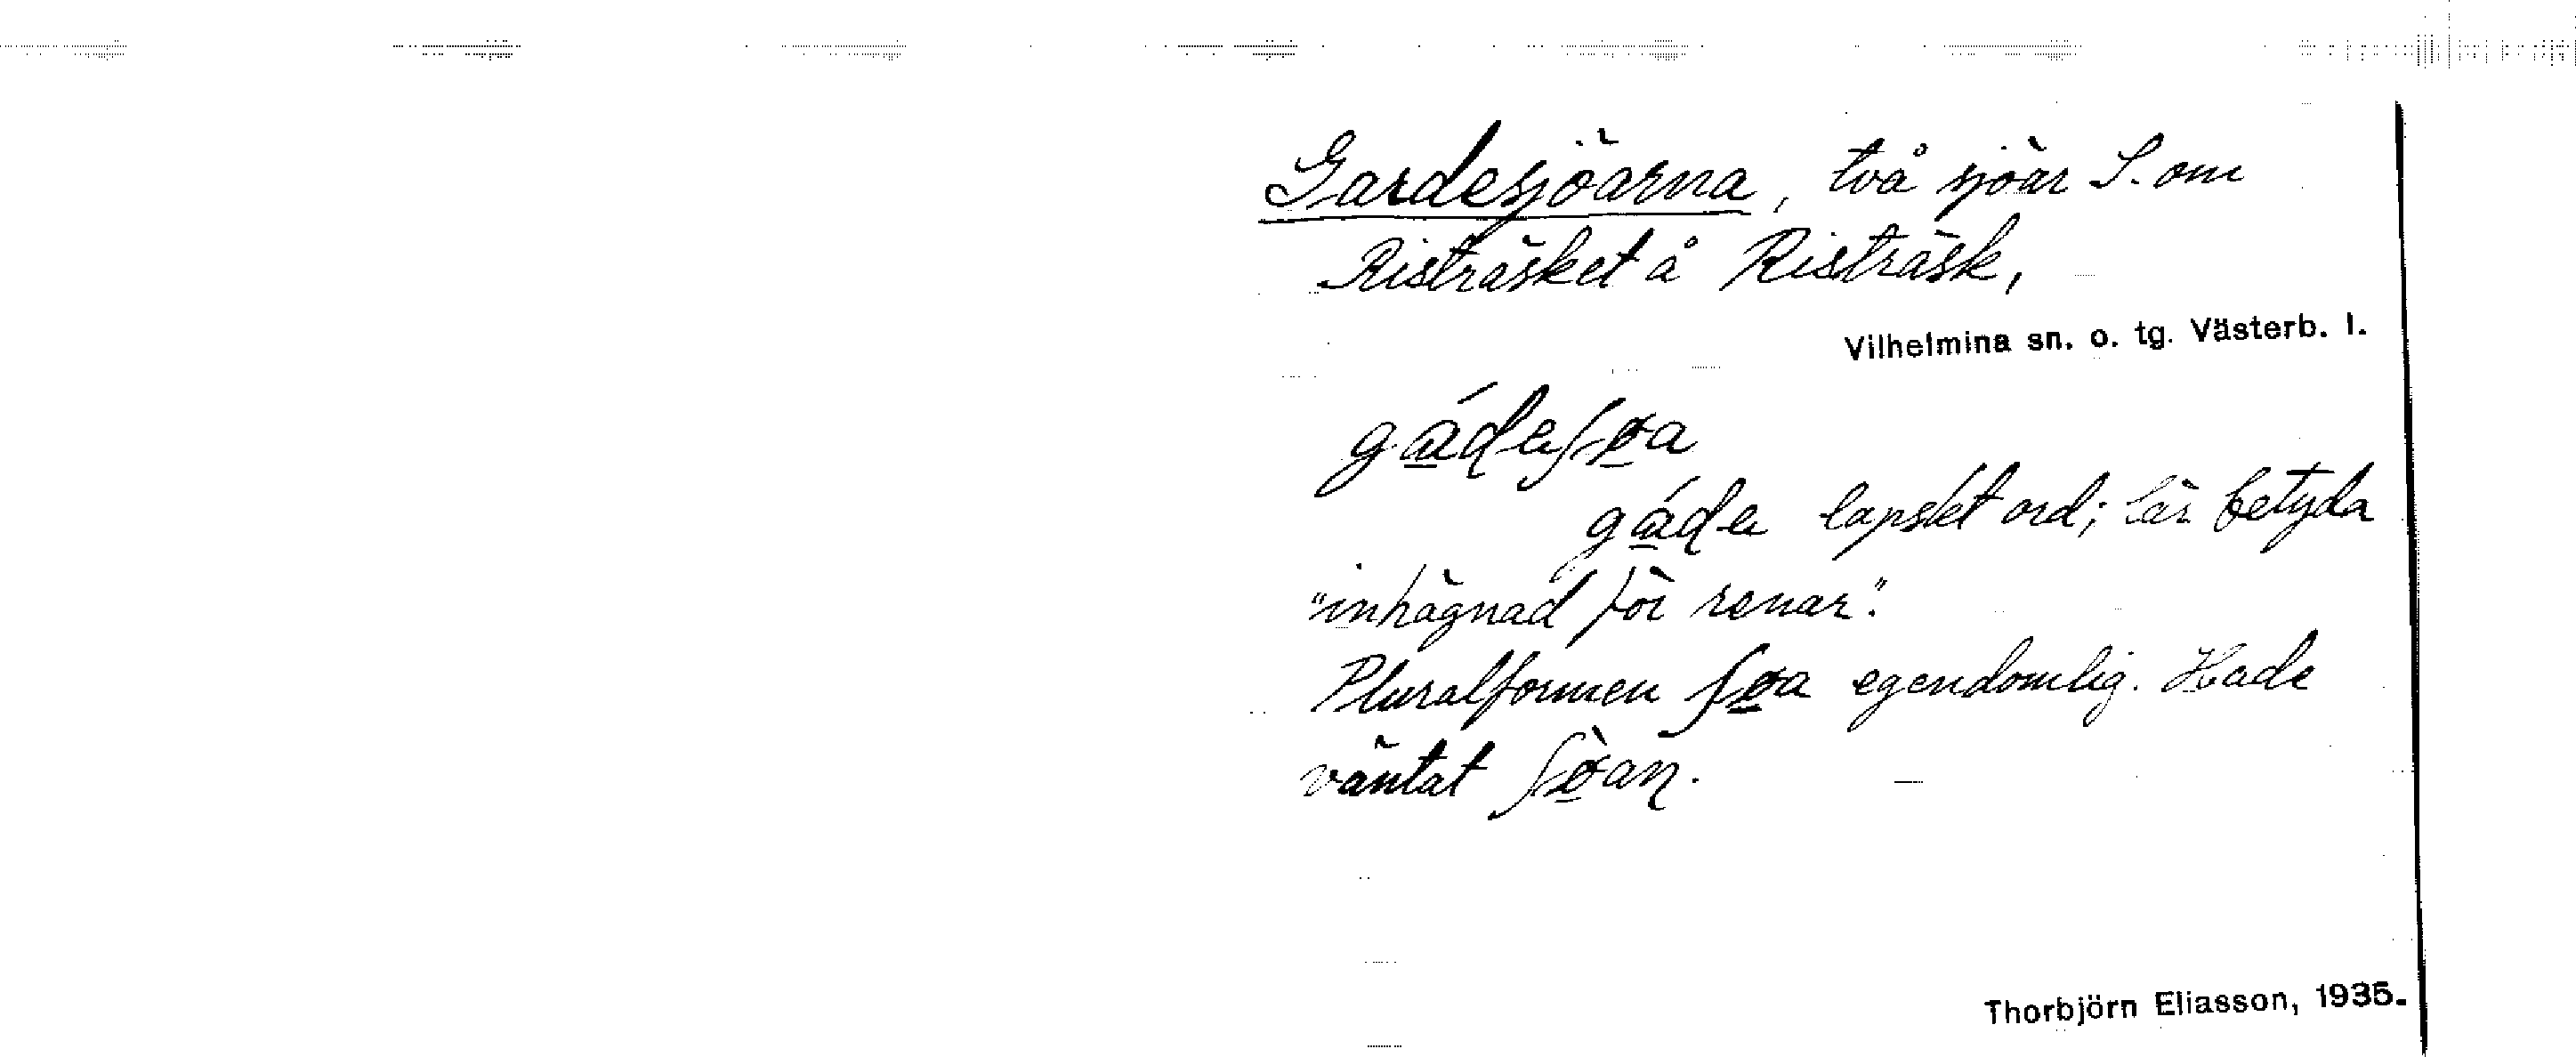 Gardesjöarna, två sjöar S. om
Risträsket å Risträsk,
Vilhelmina sn. o. tg. Västerb. l.
gáḍeʃøa
gáḍe lapskt ord; lär betyda
"inhägnad för renar".
Pluralformen ʃøa egendomlig. Hade
väntat ʃø̀aṇ.
Thorbjörn Eliasson, 1935.